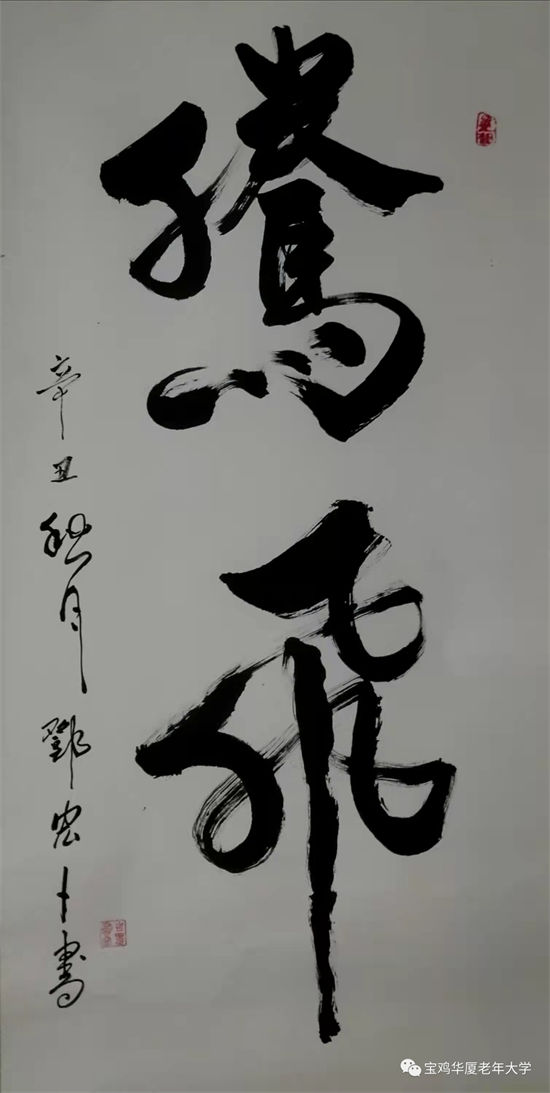 騰飛
辛丑秋月鄧宏卜書
宝鸡华厦老年大学